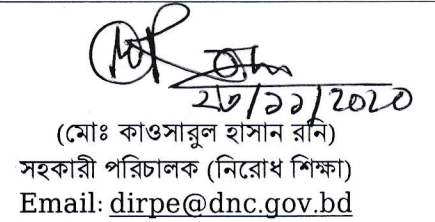 ২৩/১১/2020
(মোঃ কাওসারুল হাসান রনি)
সহকারী পরিচালক (নিরোধ শিক্ষা)
Email: dirpe@dnc.gov.bd